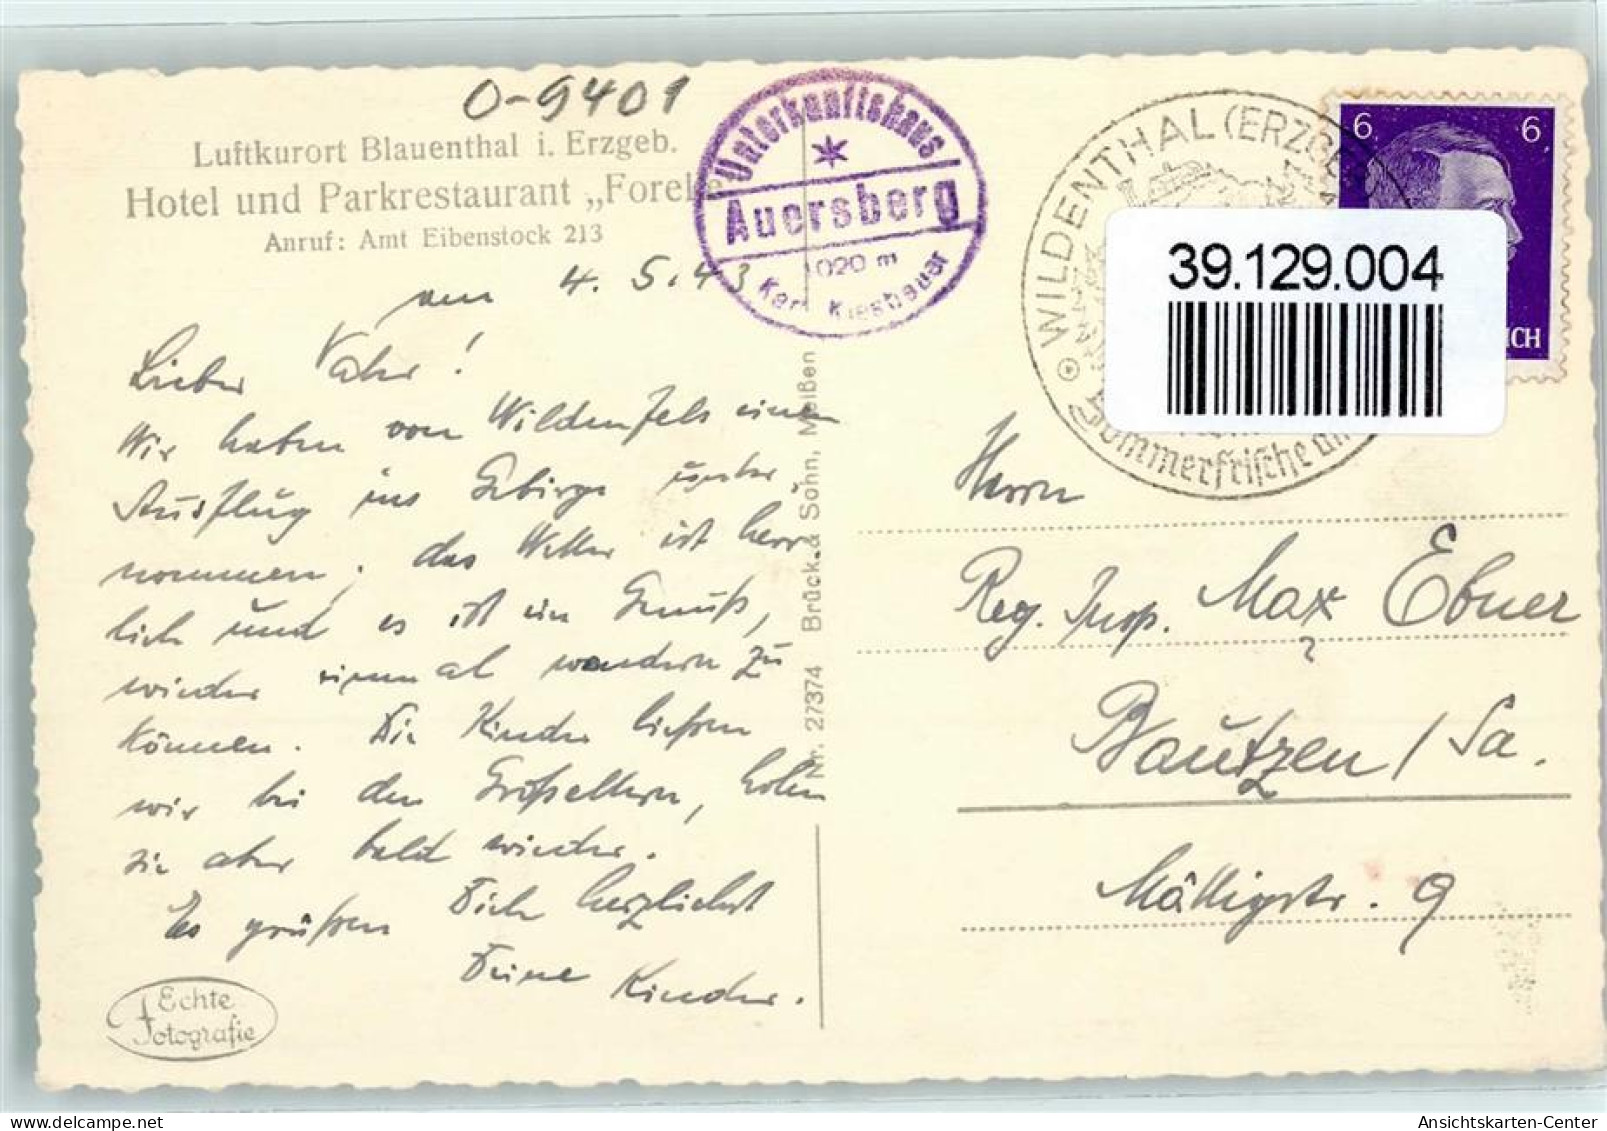 O-9401
Luftkurort Blauenthal i. Erzgeb.
Hotel und Parkrestaurant „Forel
Anruf: Amt Eibenstock 213
Unterkunftshaus
Auersberg
1020 m
Karl Kiesbauer
WILDENTHAL (ERZGEB
Sommerfrische un
6 6
ICH
39.129.004
am 4. 5. 43
Lieber Vater!
Wir haben von Wildenfels einen
Ausflug ins Gebirge unter-
nommen; das Wetter ist herr-
lich und es ist ein Genuß,
wieder einmal wandern zu
können. Die Kinder ließen
wir bei den Großeltern, holen
sie aber bald wieder.
Es grüßen Dich herzlichst
Deine Kinder.
Echte
Fotografie
Nr. 27374 Brück & Sohn, Meißen
Herrn
Reg. Insp. Max Ebner
Bautzen / Sa.
Mättigstr. 9
Ansichtskarten-Center